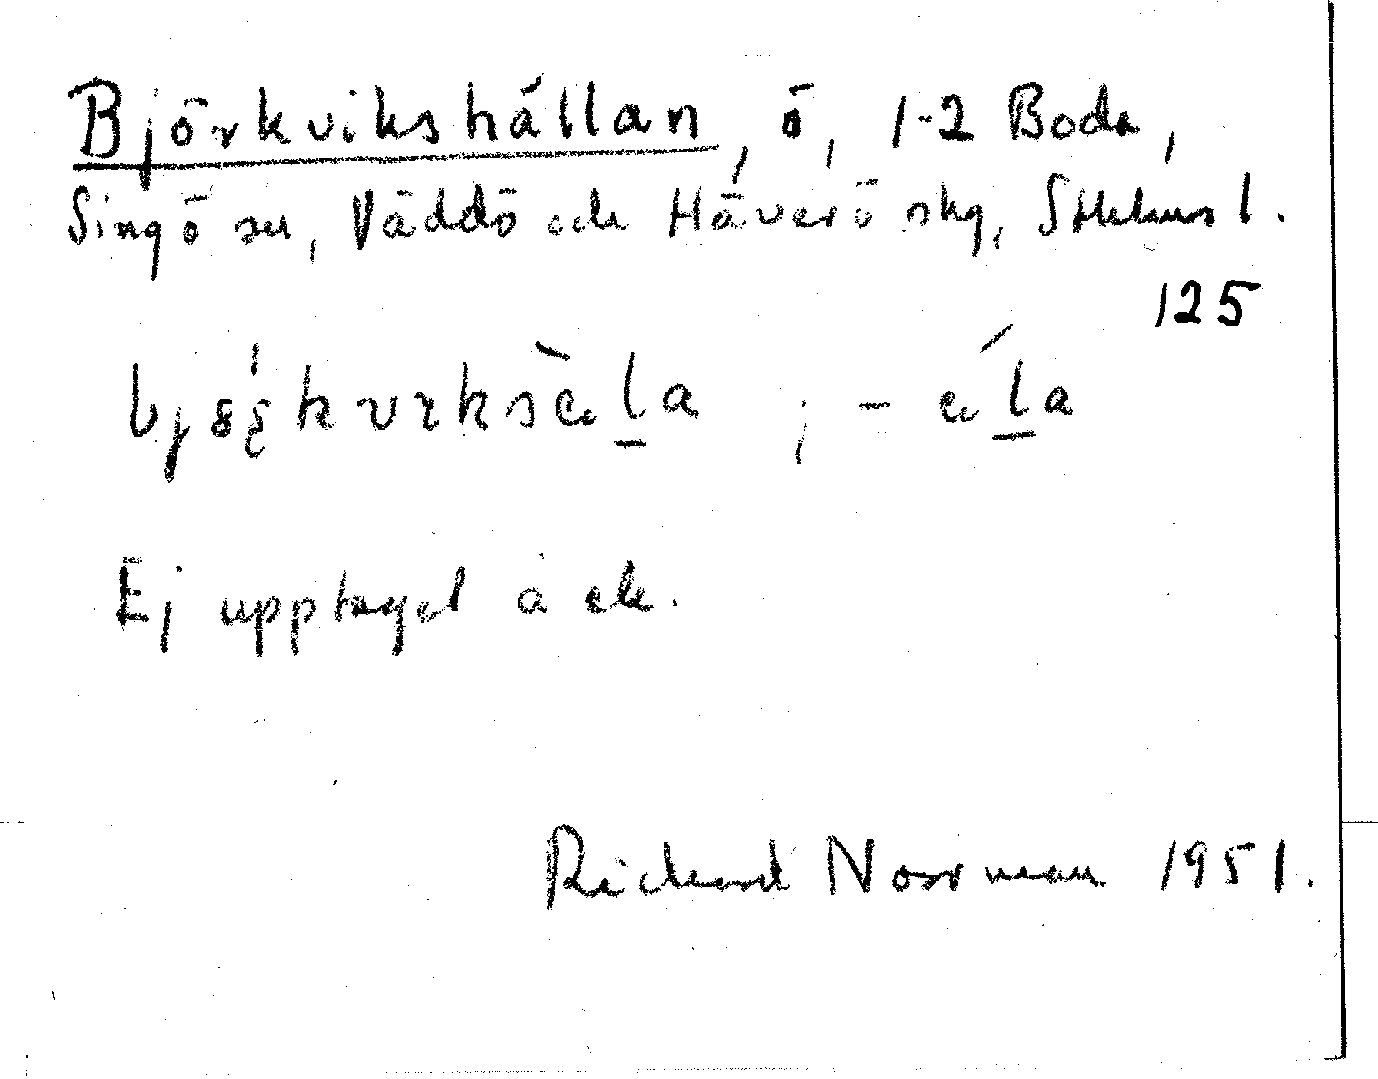 Björkvikshällan, ö, 1-2 Boda,
Singö sn, Väddö och Häverö skg, Sthlms l.
125
Ej upptaget å ek.
Richard Norrman 1951.